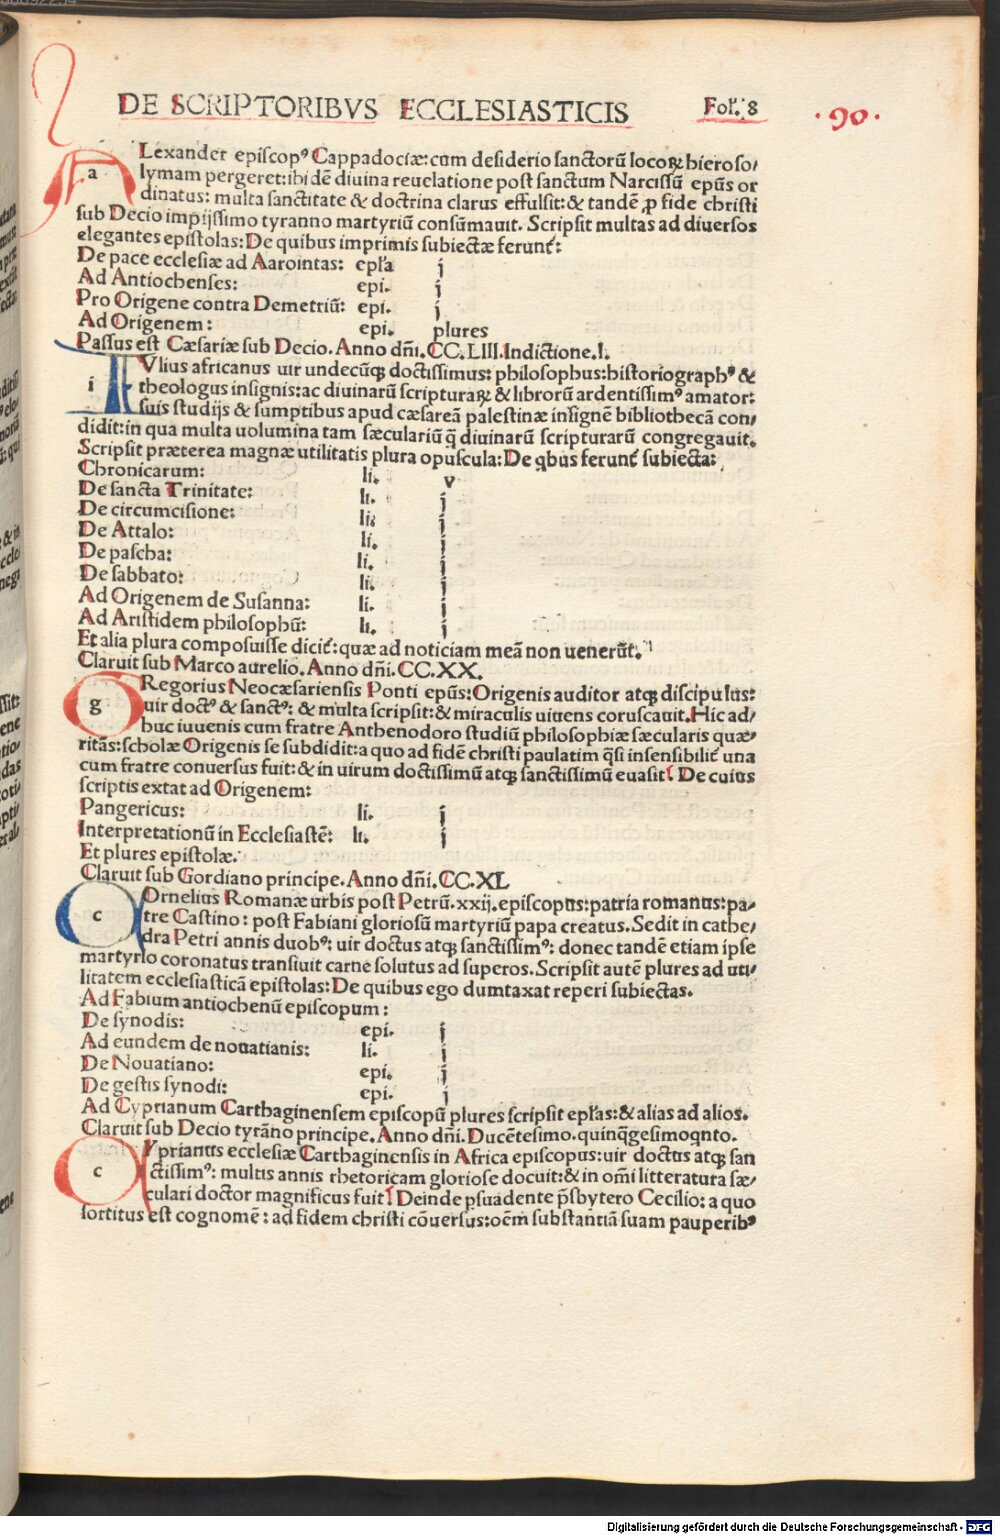 DE SCRIPTORIBVS ECCLESIASTICIS Fol. 8
.90.
ALexander episcopꝰ Cappadociæ: cum desiderio sanctorũ locoꝝ hieroso/
lymam pergeret: ibidẽ diuina reuelatione post sanctum Narcissũ ep̃us or
dinatus: multa sanctitate & doctrina clarus effulsit: & tandẽ ꝓ fide christi
sub Decio impijssimo tyranno martyriũ consũmauit. Scripsit multas ad diuersos
elegantes epistolas: De quibus imprimis subiectæ ferunt̃:
De pace ecclesiæ ad Aarointas: epl̃a j
Ad Antiochenses: epi. j
Pro Origene contra Demetriũ: epi. j
Ad Origenem: epi. plures
Passus est Cæsariæ sub Decio. Anno dñi. CC. LIII. Indictione. I.
IVlius africanus uir undecũqꝫ doctissimus: philosophus: historiographꝰ &
theologus insignis: ac diuinarũ scripturaꝝ & librorũ ardentissimꝰ amator:
suis studijs & sumptibus apud cæsareã palestinæ insignẽ bibliothecã con/
didit: in qua multa uolumina tam sæculariũ q̃ diuinarũ scripturarũ congregauit.
Scripsit præterea magnæ utilitatis plura opuscula: De qbus ferunt̃ subiecta:
Chronicarum: li. v
De sancta Trinitate: li. j
De circumcisione: li. j
De Attalo: li. j
De pascha: li. j
De sabbato: li. j
Ad Origenem de Susanna: li. j
Ad Aristidem philosophũ: li. j
Et alia plura composuisse dicit̃: quæ ad noticiam meã non uenerũt.
Claruit sub Marco aurelio. Anno dñi. CC. XX.
GRegorius Neocæsariensis Ponti ep̃us: Origenis auditor atqꝫ discipulus:
uir doctꝰ & sanctꝰ: & multa scripsit: & miraculis uiuens coruscauit. Hic ad/
huc iuuenis cum fratre Anthenodoro studiũ philosophiæ sæcularis quæ/
ritãs: scholæ Origenis se subdidit: a quo ad fidẽ christi paulatim q̃si insensibilit̃ una
cum fratre conuersus fuit: & in uirum doctissimũ atqꝫ sanctissimũ euasit. De cuius
scriptis extat ad Origenem:
Pangericus: li. j
Interpretationũ in Ecclesiastẽ: li. j
Et plures epistolæ.
Claruit sub Gordiano principe. Anno dñi. CC. XL
COrnelius Romanæ urbis post Petrũ. xxij. episcopus: patria romanus: pa/
tre Castino: post Fabiani gloriosũ martyriũ papa creatus. Sedit in cathe/
dra Petri annis duobꝰ: uir doctus atqꝫ sanctissimꝰ: donec tandẽ etiam ipse
martyrio coronatus transiuit carne solutus ad superos. Scripsit autẽ plures ad uti/
litatem ecclesiasticã epistolas: De quibus ego dumtaxat reperi subiectas.
Ad Fabium antiochenũ episcopum:
De synodis: epi. j
Ad eundem de nouatianis: li. j
De Nouatiano: epi. j
De gestis synodi: epi. j
Ad Cyprianum Carthaginensem episcopũ plures scripsit epl̃as: & alias ad alios.
Claruit sub Decio tyrãno principe. Anno dñi. Ducẽtesimo. quinq̃gesimoqnto.
CYprianus ecclesiæ Carthaginensis in Africa episcopus: uir doctus atqꝫ san
ctissimꝰ: multis annis rhetoricam gloriose docuit: & in om̃i litteratura sæ/
culari doctor magnificus fuit. Deinde ꝑsuadente p̃sbytero Cecilio: a quo
sortitus est cognomẽ: ad fidem christi cõuersus: oẽm substantiã suam pauperibꝰ
Digitalisierung gefördert durch die Deutsche Forschungsgemeinschaft - DFG